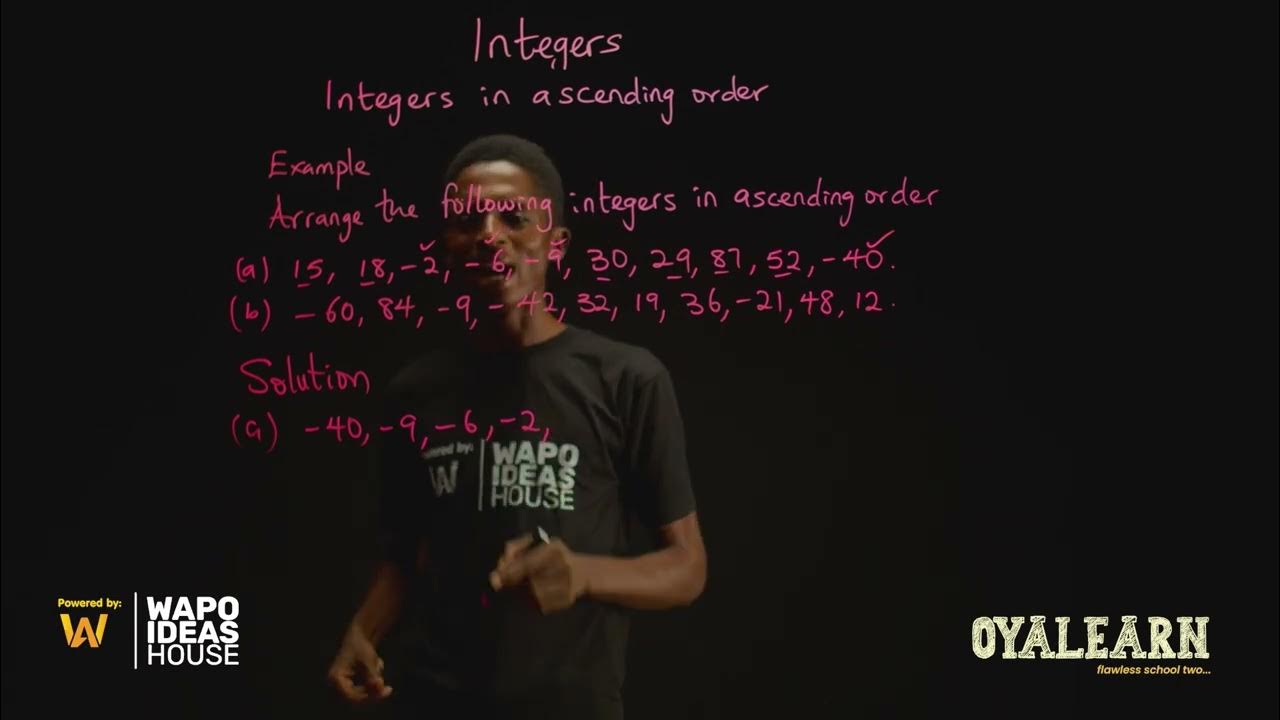 Integers
Integers in ascending order
Example
Arrange the following integers in ascending order
(a) 15, 18, -2, -6, -9, 30, 29, 87, 52, -40.
(b) -60, 84, -9, -42, 32, 19, 36, -21, 48, 12.
Solution
(a) -40, -9, -6, -2,
Powered by:
W
WAPO
IDEAS
HOUSE
Powered by:
W
WAPO
IDEAS
HOUSE
OYALEARN
flawless school two...